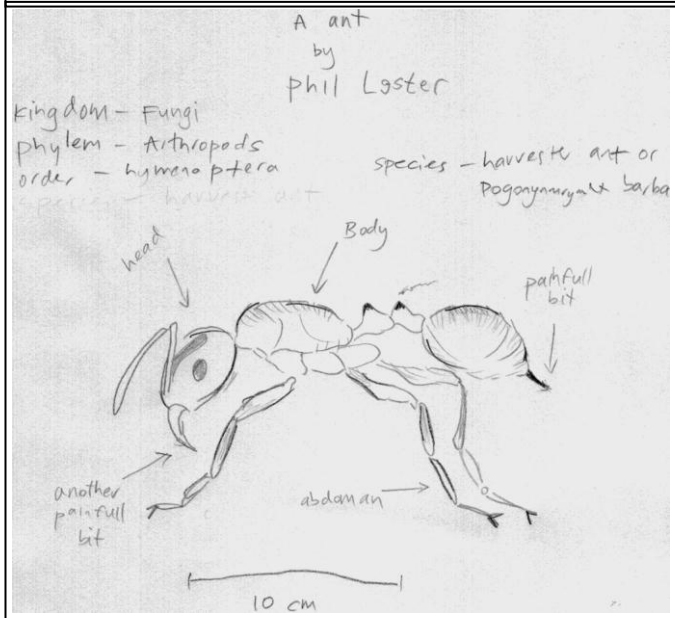 A ant
by
Phil Lester
Kingdom - Fungi
phylem - Arthropods
order - hymenoptera
species - harvest ant
species - harvester ant or
barba
head
Body
painfull
bit
another
painfull
bit
abdoman
10 cm